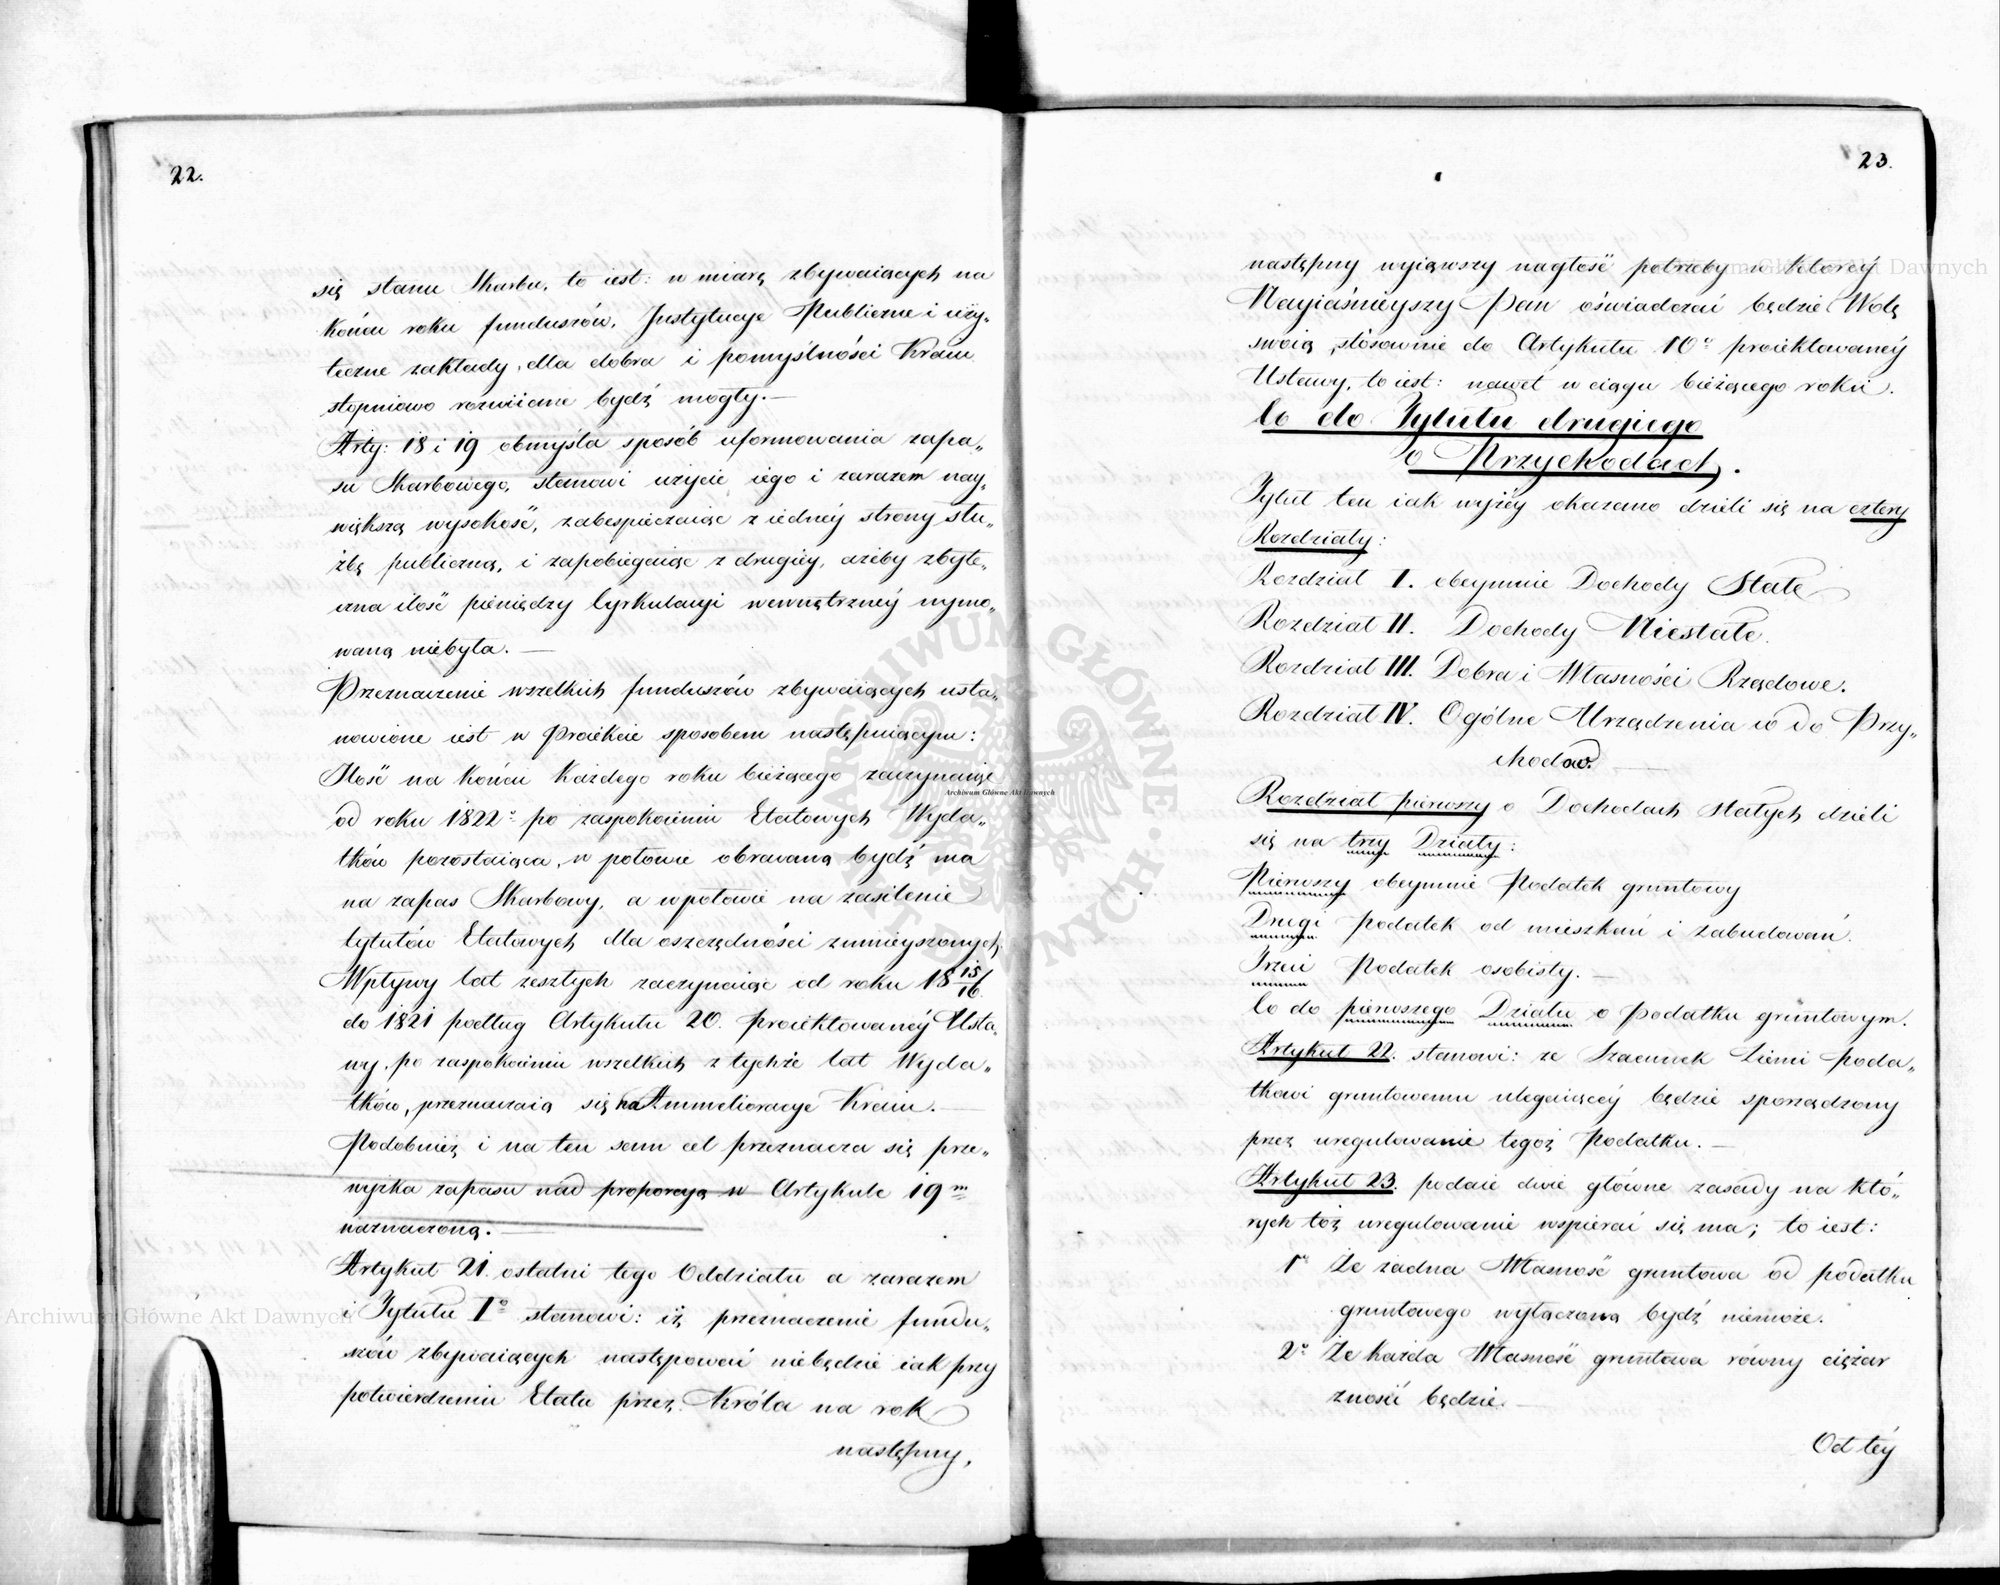 22.
się stanu Skarbu, to iest: w miarę zbywaiących na
końcu roku funduszów, Instytucye Publiczne i uży„
teczne zakłady, dla dobra i pomyślności Kraiu
stopniowo rozwiiane bydź mogły.—
Arty: 18 i 19 obmyśla sposób uformowania zapa„
su Skarbowego, stanowi użycie iego i zarazem nay„
większą wysokość, zabespieczaiąc z iedney strony słu„
żbę publiczną, i zapobiegaiąc z drugiéy, ażeby zbyte„
czna ilość pieniędzy Cyrkulacyi wewnętrznéy uymo„
waną niebyła.—
Przeznaczenie wszelkich funduszów zbywaiących usta„
nowione iest w Proiekcie sposobem następuiącym:
Ilość na końcu każdego roku bieżącego zaczynaiąc
od roku 1822º po zaspokoieniu Etatowych Wyda„
tków pozostaiąca, w połowie obracaną bydź ma
na zapas Skarbowy, a w połowie na zasilenie
tytułów Etatowych dla oszczędności zmnieyszonych.
Wpływy lat zeszłych zaczynaiąc od roku 18 15/16
do 1821 podług Artykułu 20. proiektowanéy Usta„
wy, po zaspokoieniu wszelkich z tychże lat Wyda„
tków, przeznaczaią się na Ammelioracye Kraiu.—
Podobnież i na ten sam cel przeznacza się prze„
wyżka zapasu nad proporcyą w Artykule 19m
naznaczoną.—
Artykuł 21. ostatni tego Oddziału a zarazem
i Tytułu Iº stanowi: iż przeznaczenie fundu„
szów zbywaiących następować niebędzie iak przy
potwierdzeniu Etatu przez Króla na rok
następny,
23.
następny wyiąwszy nagłość potrzeby w któréy
Nayiaśnieyszy Pan oświadczać będzie Wolę
swoią, stósownie do Artykułu 10º proiektowanéy
Ustawy, to iest: nawet w ciągu bieżącego roku.
Co do Tytułu drugiego
o Przychodach.
Tytuł ten iak wyżéy okazano dzieli się na cztery
Rozdziały:
Rozdział I. obeymuie Dochody Stałe
Rozdział II. Dochody Niestałe.
Rozdział III. Dobra i Własności Rządowe.
Rozdział IV. Ogólne Urządzenia co do Przy„
chodów.
Rozdział pierwszy o Dochodach Stałych dzieli
się na trzy Działy:
Pierwszy obeymuie Podatek gruntowy
Drugi podatek od mieszkań i zabudowań.
Trzeci Podatek osobisty.—
Co do pierwszego Działu o podatku gruntowym.
Artykuł 22. stanowi: że Szacunek Ziemi poda„
tkowi gruntowemu ulegaiącey będzie sporządzony
przez uregulowanie tegoż Podatku.—
Artykuł 23. podaie dwie główne zasady na któ„
rych toż uregulowanie wspierać się ma; to iest:
1º Że żadna Własność gruntowa od podatku
gruntowego wyłączoną bydź niemoże.
2º Że każda Własność gruntowa równy ciężar
znosić będzie.—
Od téy
Archiwum Główne Akt Dawnych
Archiwum Główne Akt Dawnych
Archiwum Główne Akt Dawnych